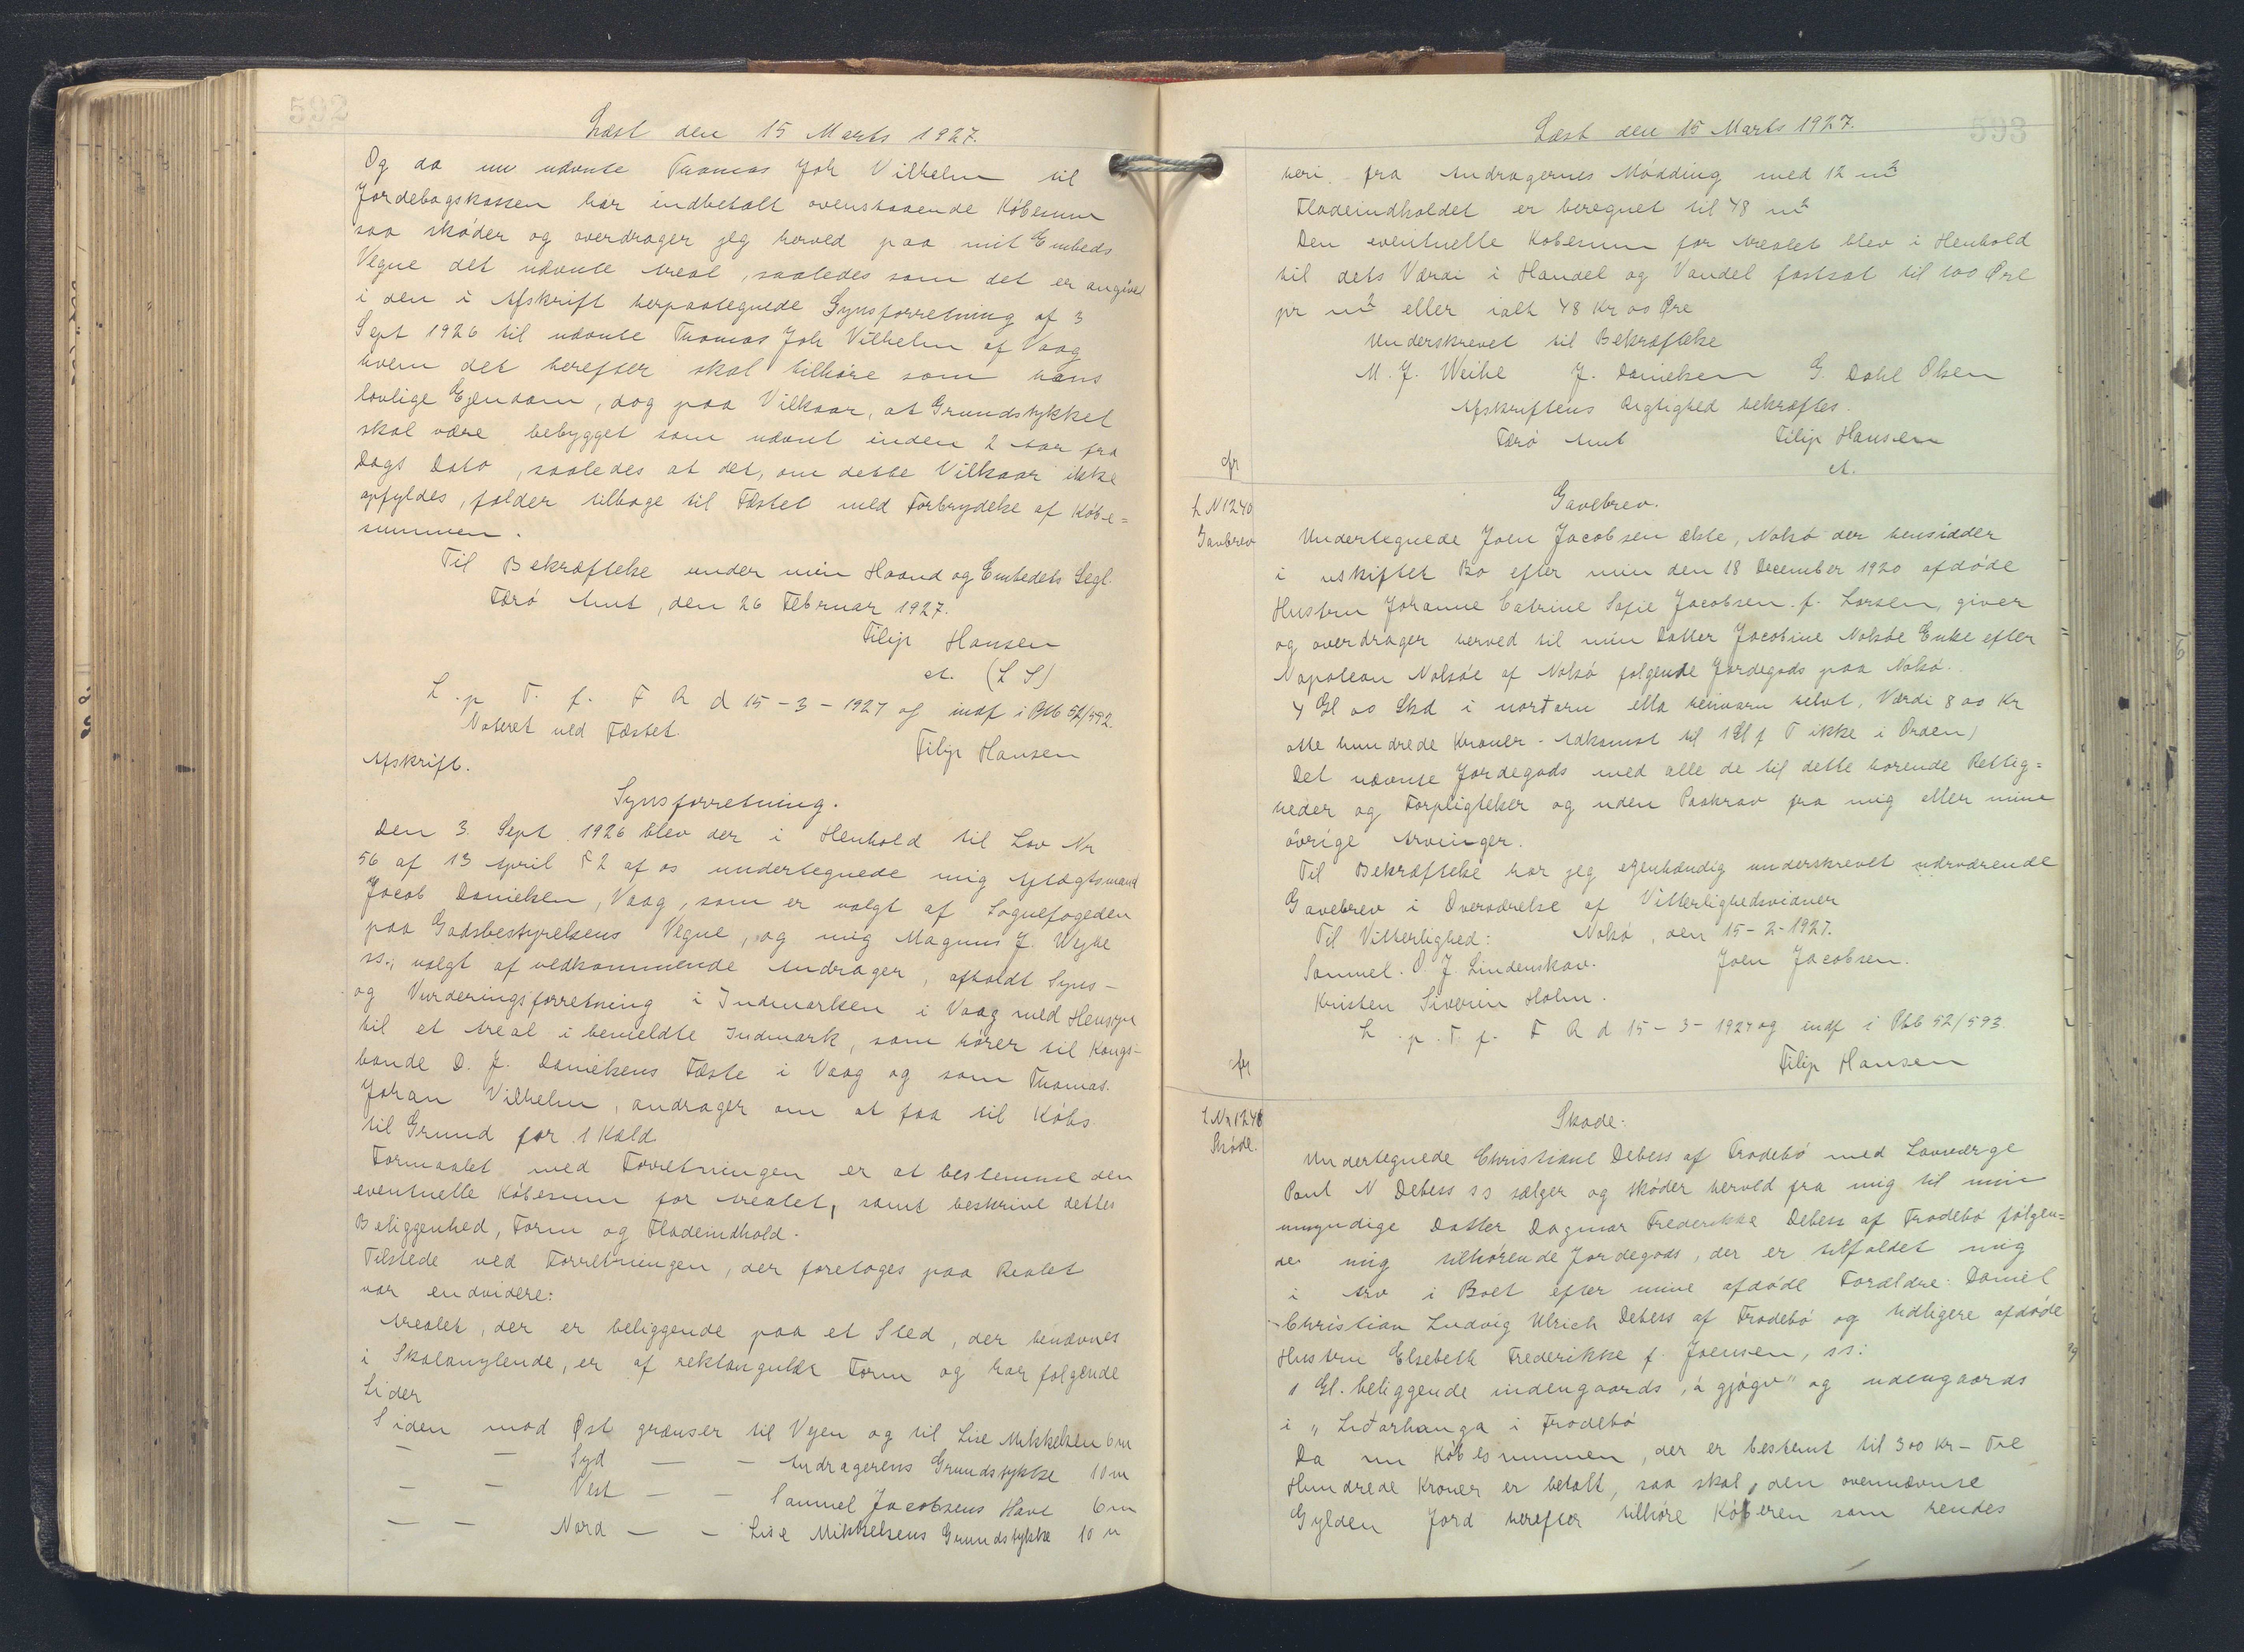 592
Læst den 15 Marts 1927.
Og da nu nævnte Thomas Joh Vilhelm til
Jordebogskassen har indbetalt ovenstaaende Købesum
saa skøder og overdrager jeg herved paa mit Embeds
Vegne det nævnte Areal, saaledes som det er angivet
i den i Afskrift herpaategnede Synsforretning af 3
Sept 1926 til nævnte Thomas Joh Vilhelm af Vaag
hvem det herefter skal tilhøre som hans
lovlige Ejendom, dog paa Vilkaar, at Grundstykket
skal være bebygget som nævnt inden 2 Aar fra
Dags Dato, saaledes at det, om dette Vilkaar ikke
opfyldes, falder tilbage til Fæstet med Forbrydelse af Købe=
summen.
Til Bekræftelse under min Haand og Embedets Segl.
Færø Amt, den 26 Februar 1927.
Filip Hansen
cst. (L S)
L. p T. f. F R d 15-3-1927 og indf i Pbb 52/592
Noteret ved Fæstet.
Filip Hansen
Afskrift.
Synsforretning.
Den 3. Sept 1926 blev der i Henhold til Lov Nr
56 af 13 April F 2 af os undertegnede mig Aftægtsmand
Jacob Danielsen, Vaag, som er valgt af Sognefogeden
paa Godsbestyrelsens Vegne, og mig Magnus J. Wejhe
ss., valgt af vedkommende Andrager, afholdt Syns-
og Vurderingsforretning i Indmarken i Vaag med Hensyn
til et Areal i bemeldte Indmark, som hører til Kongs-
bonde D. J. Danielsens Fæste i Vaag og som Thomas
Johan Vilhelm, andrager om at faa til Købs
til Grund for 1 Kæld
Formaalet med Forretningen er at bestemme den
eventuelle Købesum for Arealet, samt beskrive dettes
Beliggenhed, Form og Fladeindhold.
Tilstede ved Forretningen, der foretoges paa Realet
var endvidere:
Arealet, der er beliggende paa et Sted, der benævnes
i Skalanylende, er af rektangulær Form og har følgende
Sider
Siden mod Øst grænser til Vejen og til Lise Mikkelsen 6 m
— — Syd — — Andragerens Grundstykke 10 m
— — Vest — — Samuel Jacobsens Have 6 m
— — Nord — — Lise Mikkelsens Grundstykke 10 m
593
Læst den 15 Marts 1927.
heri fra Andragernes Mødding med 12 m²
Fladeindholdet er beregnet til 48 m²
Den eventuelle Købesum for Arealet blev i Henhold
til dets Værdi i Handel og Vandel fastsat til 100 Øre
pr m² eller ialt 48 Kr 00 Øre
Underskrevet til Bekræftelse
M. J. Weihe J. Danielsen G. Dahl Olsen
Afskriftens Rigtighed bekræftes.
Færø Amt Filip Hansen
cst.
cfr
L N 1240
Gavebrev
Gavebrev.
Undertegnede Joen Jacobsen ældre, Nolsø der hensidder
i uskiftet Bo efter min den 18 December 1920 afdøde
Hustru Johanne Catrine Sofie Jacobsen f. Larsen, giver
og overdrager herved til min Datter Jacobine Nolsøe Enke efter
Napoleon Nolsøe af Nolsø følgende Jordegods paa Nolsø.
4 Gl 00 Skd i norðaru ella heimaru helvt, Værdi 800 Kr
otte hundrede Kroner. Adkomst til 1 Gl f T ikke i Orden)
Det nævnte Jordegods med alle de til dette hørende Rettig=
heder og Forpligtelser og uden Paakrav fra mig eller mine
øvrige Arvinger.
Til Bekræftelse har jeg egenhændig underskrevet nærværende
Gavebrev i Overværelse af Vitterlighedsvidner
Til Vitterlighed: Nolsø, den 15-2-1927.
Samuel. O. J. Lindenskov. Joen Jacobsen.
Kristen Siverin Holm.
L. p. T. f. F R d 15-3-1927 og indf i Pbb 52/593
Filip Hansen
cfr
L Nr 1248
Skøde.
Skøde:
Undertegnede Christiane Debess af Frodebø med Lavværge
Poul N Debess ss sælger og skøder herved fra mig til min
umyndige Datter Dagmar Frederikke Debess af Frodebø følgen=
de mig tilhørende Jordegods, der er tilfaldet mig
i Arv i Boet efter mine afdøde Forældre: Daniel
Christian Ludvig Ulrich Debess af Frodebø og tidligere afdøde
Hustru Elsebeth Frederikke f. Joensen, ss:
1 Gl. beliggende indengaards „á gjógv" og udengaards
i „Liðarhanga i Frodebø
Da nu Købesummen, der er bestemt til 300 Kr - Tre
Hundrede Kroner er betalt, saa skal den ovennævnte
Gylden Jord herefter tilhøre Køberen som hendes